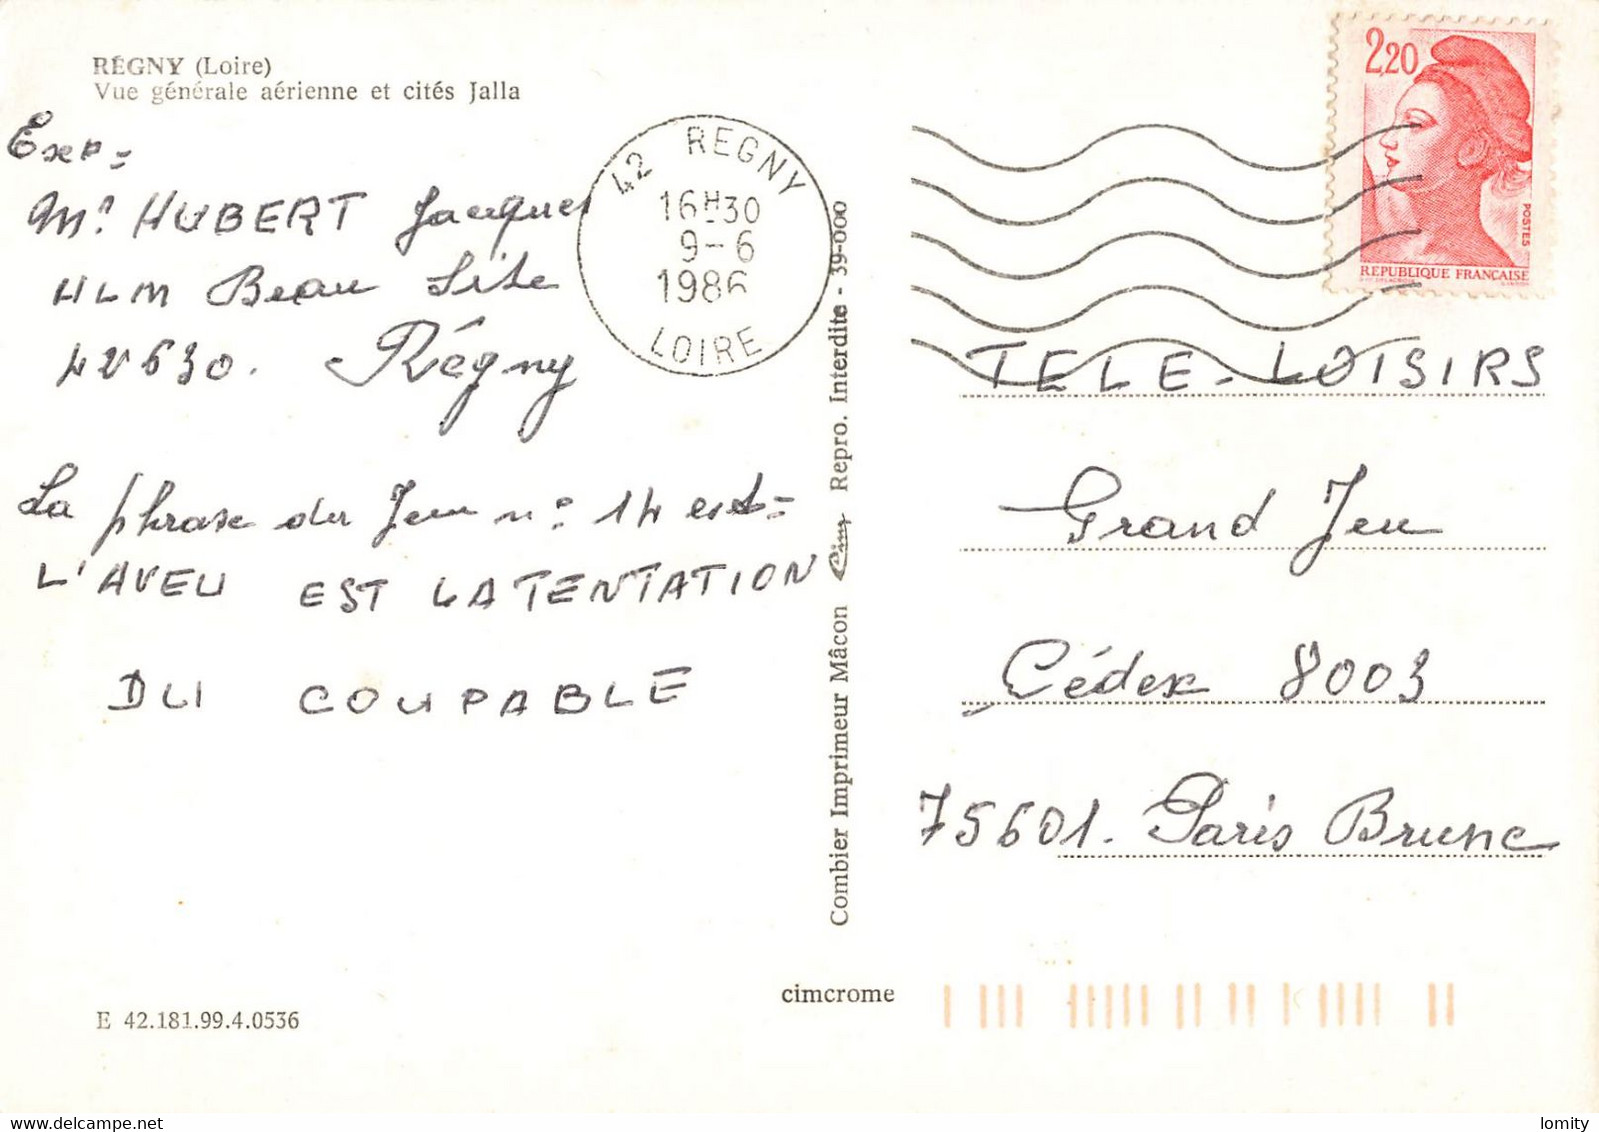 RÉGNY (Loire)
Vue générale aérienne et cités Jalla
Exp=
Mr HUBERT Jacques
HLM Beau Site
42630. Régny
La phrase du Jeu n° 14 est=
L'AVEU EST LA TENTATION
DU COUPABLE
E 42.181.99.4.0536
42 REGNY
16H30
9-6
1986
LOIRE
Combier Imprimeur Mâcon Cim Repro. Interdite - 39-000
cimcrome
2,20
POSTES
REPUBLIQUE FRANCAISE
TELE-LOISIRS
Grand Jeu
Cédex 8003
75601. Paris Brune
lomity